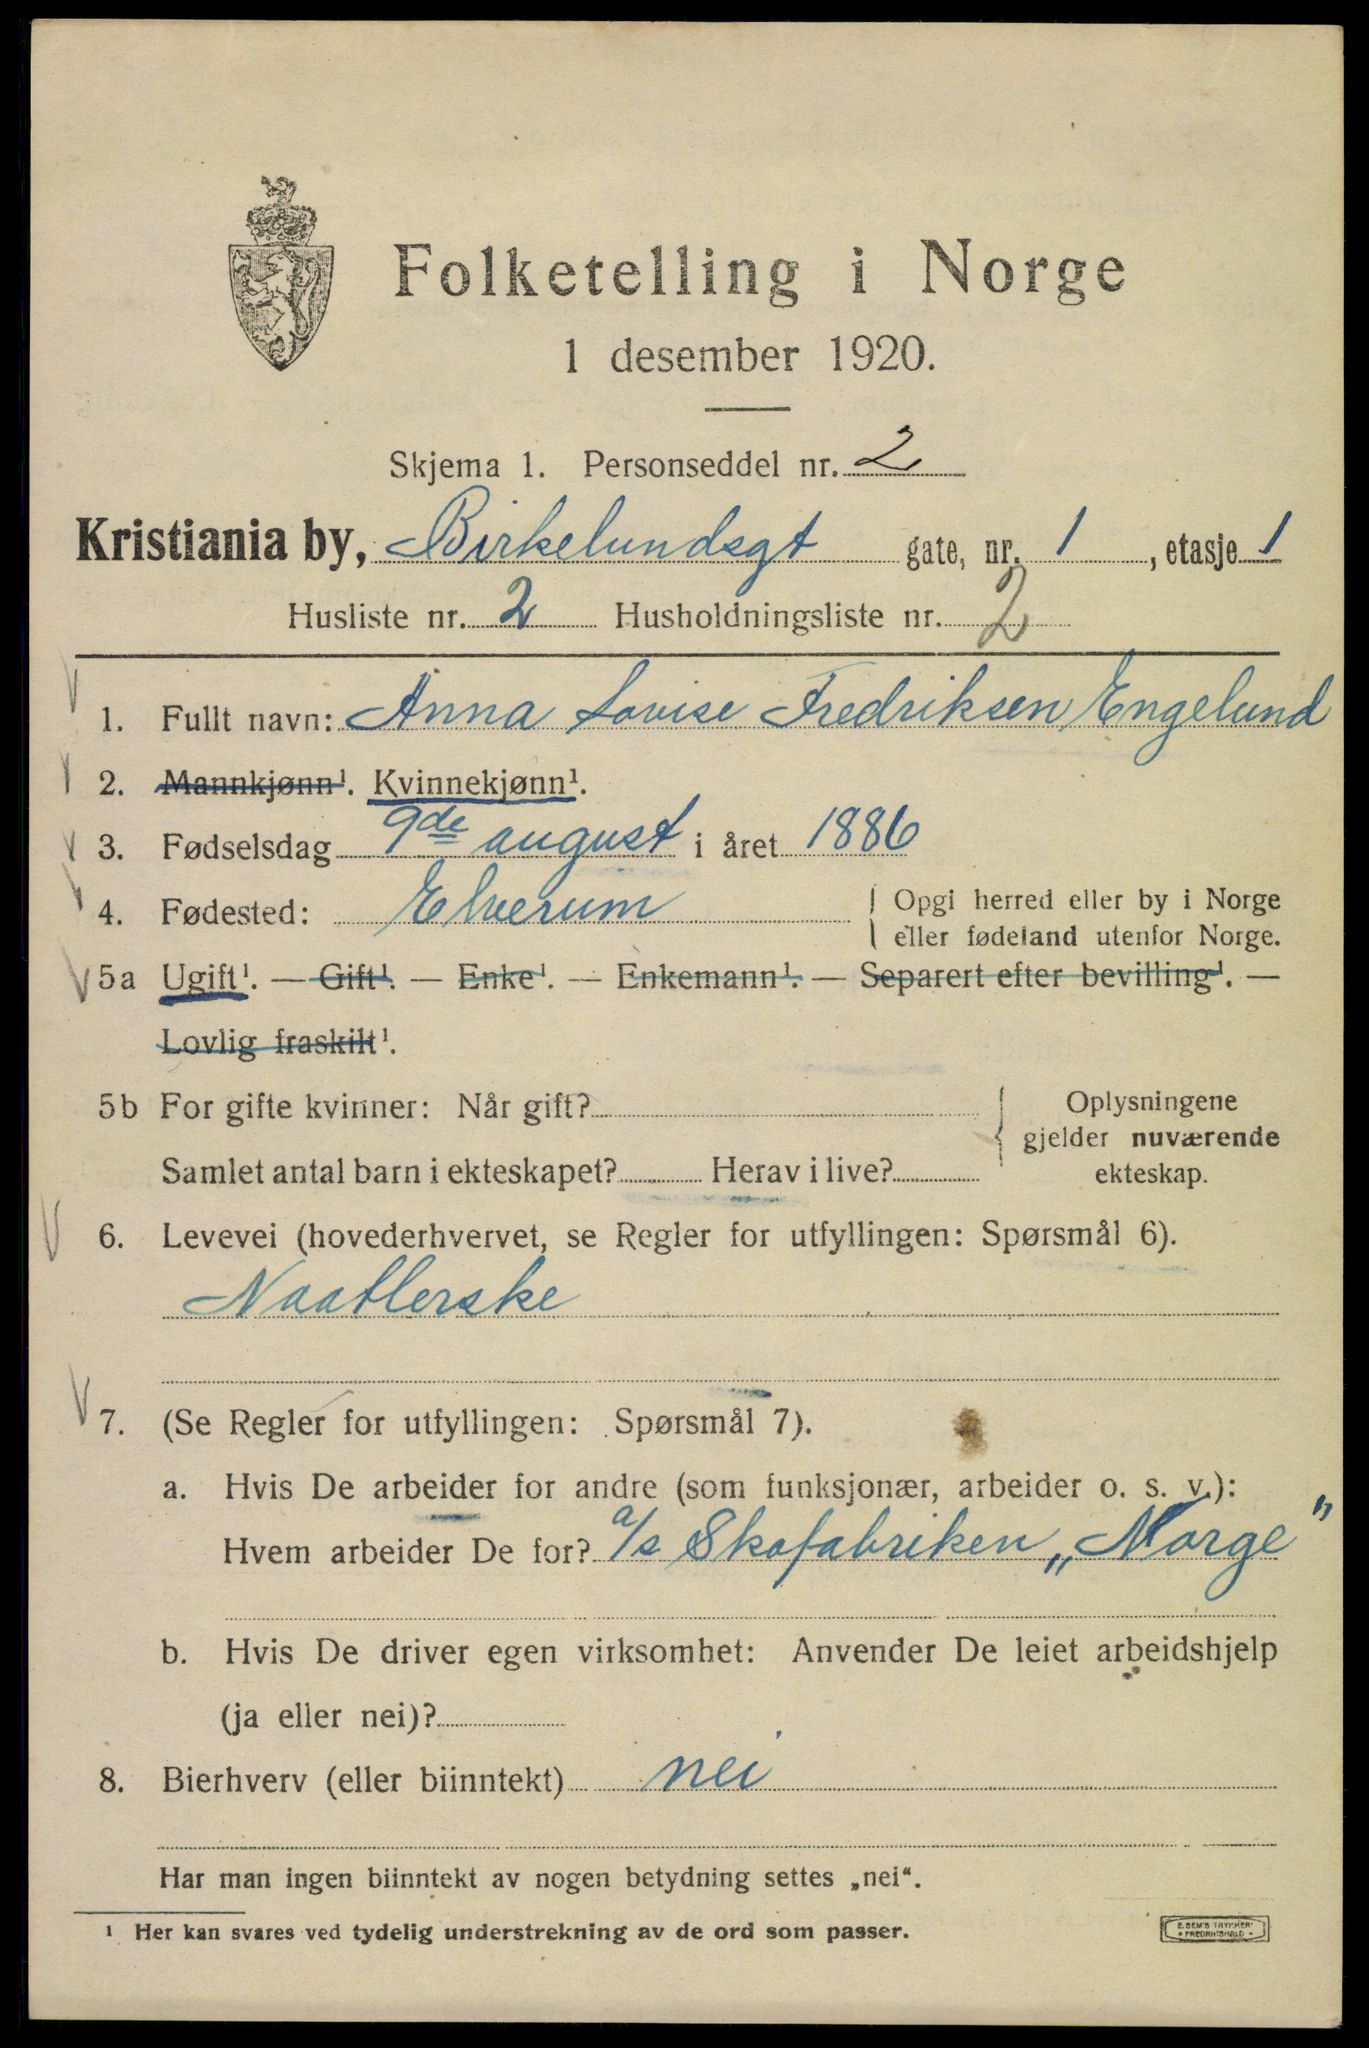 Folketelling i Norge
1 desember 1920.
Skjema 1. Personseddel nr. 2
Kristiania by, Birkelundsgt gate, nr. 1, etasje 1
Husliste nr. 2 Husholdningsliste nr. 2
1. Fullt navn: Anna Lovise Fredriksen Engelund
2. Mannkjønn¹. Kvinnekjønn¹.
3. Fødselsdag 9de august i året 1886
4. Fødested: Elverum
Opgi herred eller by i Norge
eller fødeland utenfor Norge.
5a Ugift¹. — Gift¹. — Enke¹. — Enkemann¹. — Separert efter bevilling¹. —
Lovlig fraskilt¹.
5b For gifte kvinner: Når gift?
Samlet antal barn i ekteskapet? Herav i live?
Oplysningene
gjelder nuværende
ekteskap.
6. Levevei (hovederhvervet, se Regler for utfyllingen: Spørsmål 6).
Naatlerske
7. (Se Regler for utfyllingen: Spørsmål 7).
a. Hvis De arbeider for andre (som funksjonær, arbeider o. s. v.):
Hvem arbeider De for? a/s Skofabriken „Norge"
b. Hvis De driver egen virksomhet: Anvender De leiet arbeidshjelp
(ja eller nei)?
8. Bierhverv (eller biinntekt) nei
Har man ingen biinntekt av nogen betydning settes „nei“.
¹ Her kan svares ved tydelig understrekning av de ord som passer.
E. SEM'S TRYKKERI
• FREDRIKSHALD •